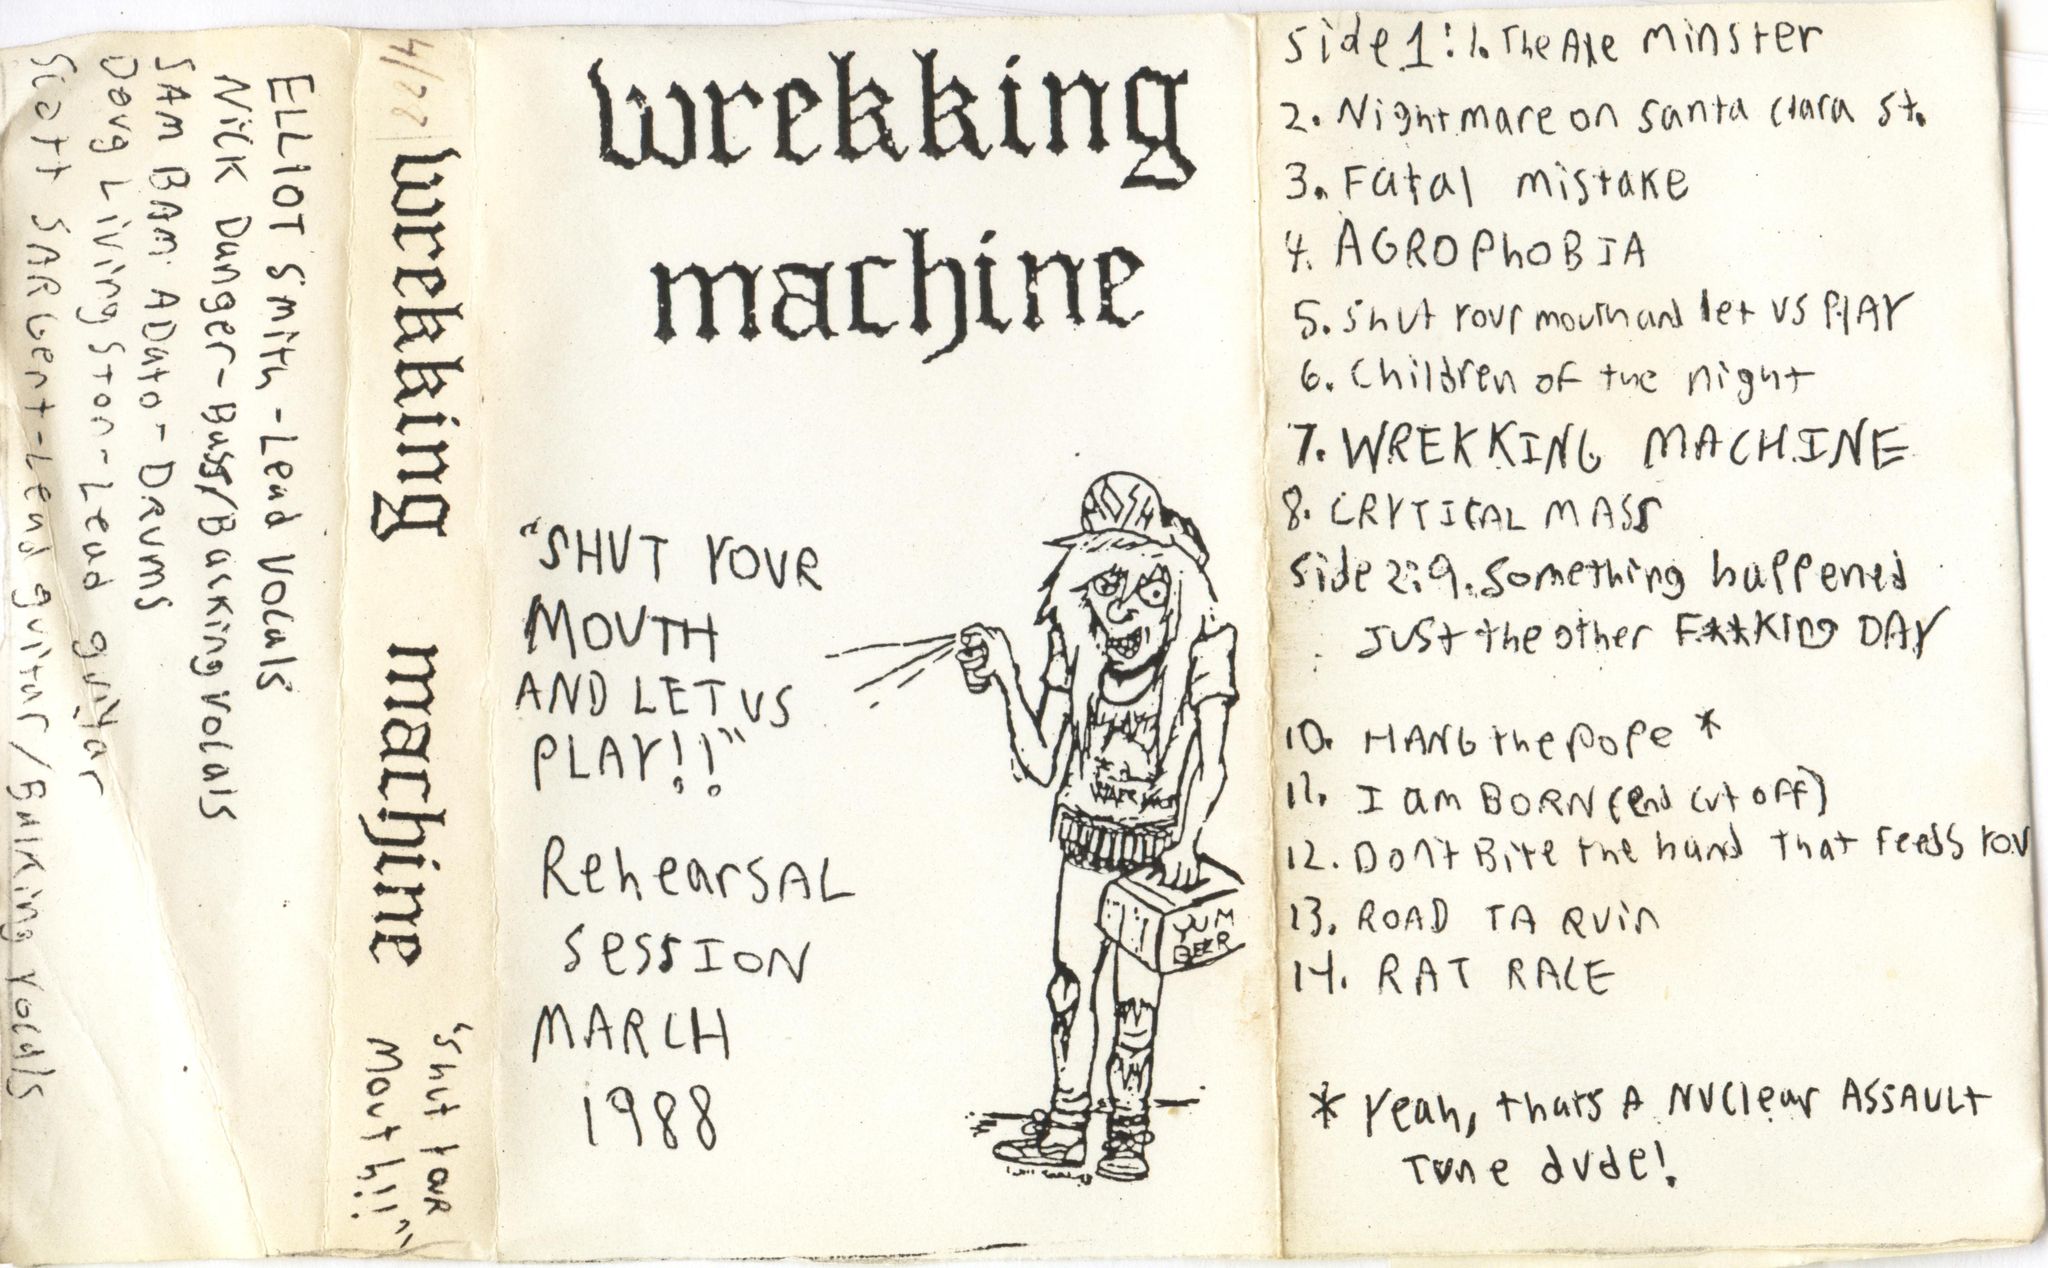 ELLIOT Smith - Lead Vocals
Nick Danger - Bass/Backing Vocals
SAM BAM ADato - DRUMS
Doug LivingSton - Lead guitar
Scott SARGent - Lead guitar/Backing Vocals
4/28
wrekking machine
"Shut YouR
Mouth!!"
wrekking
machine
"SHUT YOUR
MOUTH
AND LET US
PLAY!!"
RehearSAL
SeSSION
MARCH
1988
MOSH
YUM
BEER
Side 1: 1. The Axe Minster
2. Nightmare on Santa Clara St.
3. Fatal mistake
4. AGROPhOBIA
5. Shut Your mouth and let US PlAY
6. Children of the night
7. WREKKING MACHINE
8. CRYTICAL MASS
Side 2: 9. Something happened
JUSt the other F**KIng DAY
10. HANG the POPe *
11. I am BORN (end cut off)
12. Don't Bite the hand that Feeds YoU
13. ROAD TA RUin
14. RAT RACE
* Yeah, thats A NUClear ASSAULT
Tune dude!